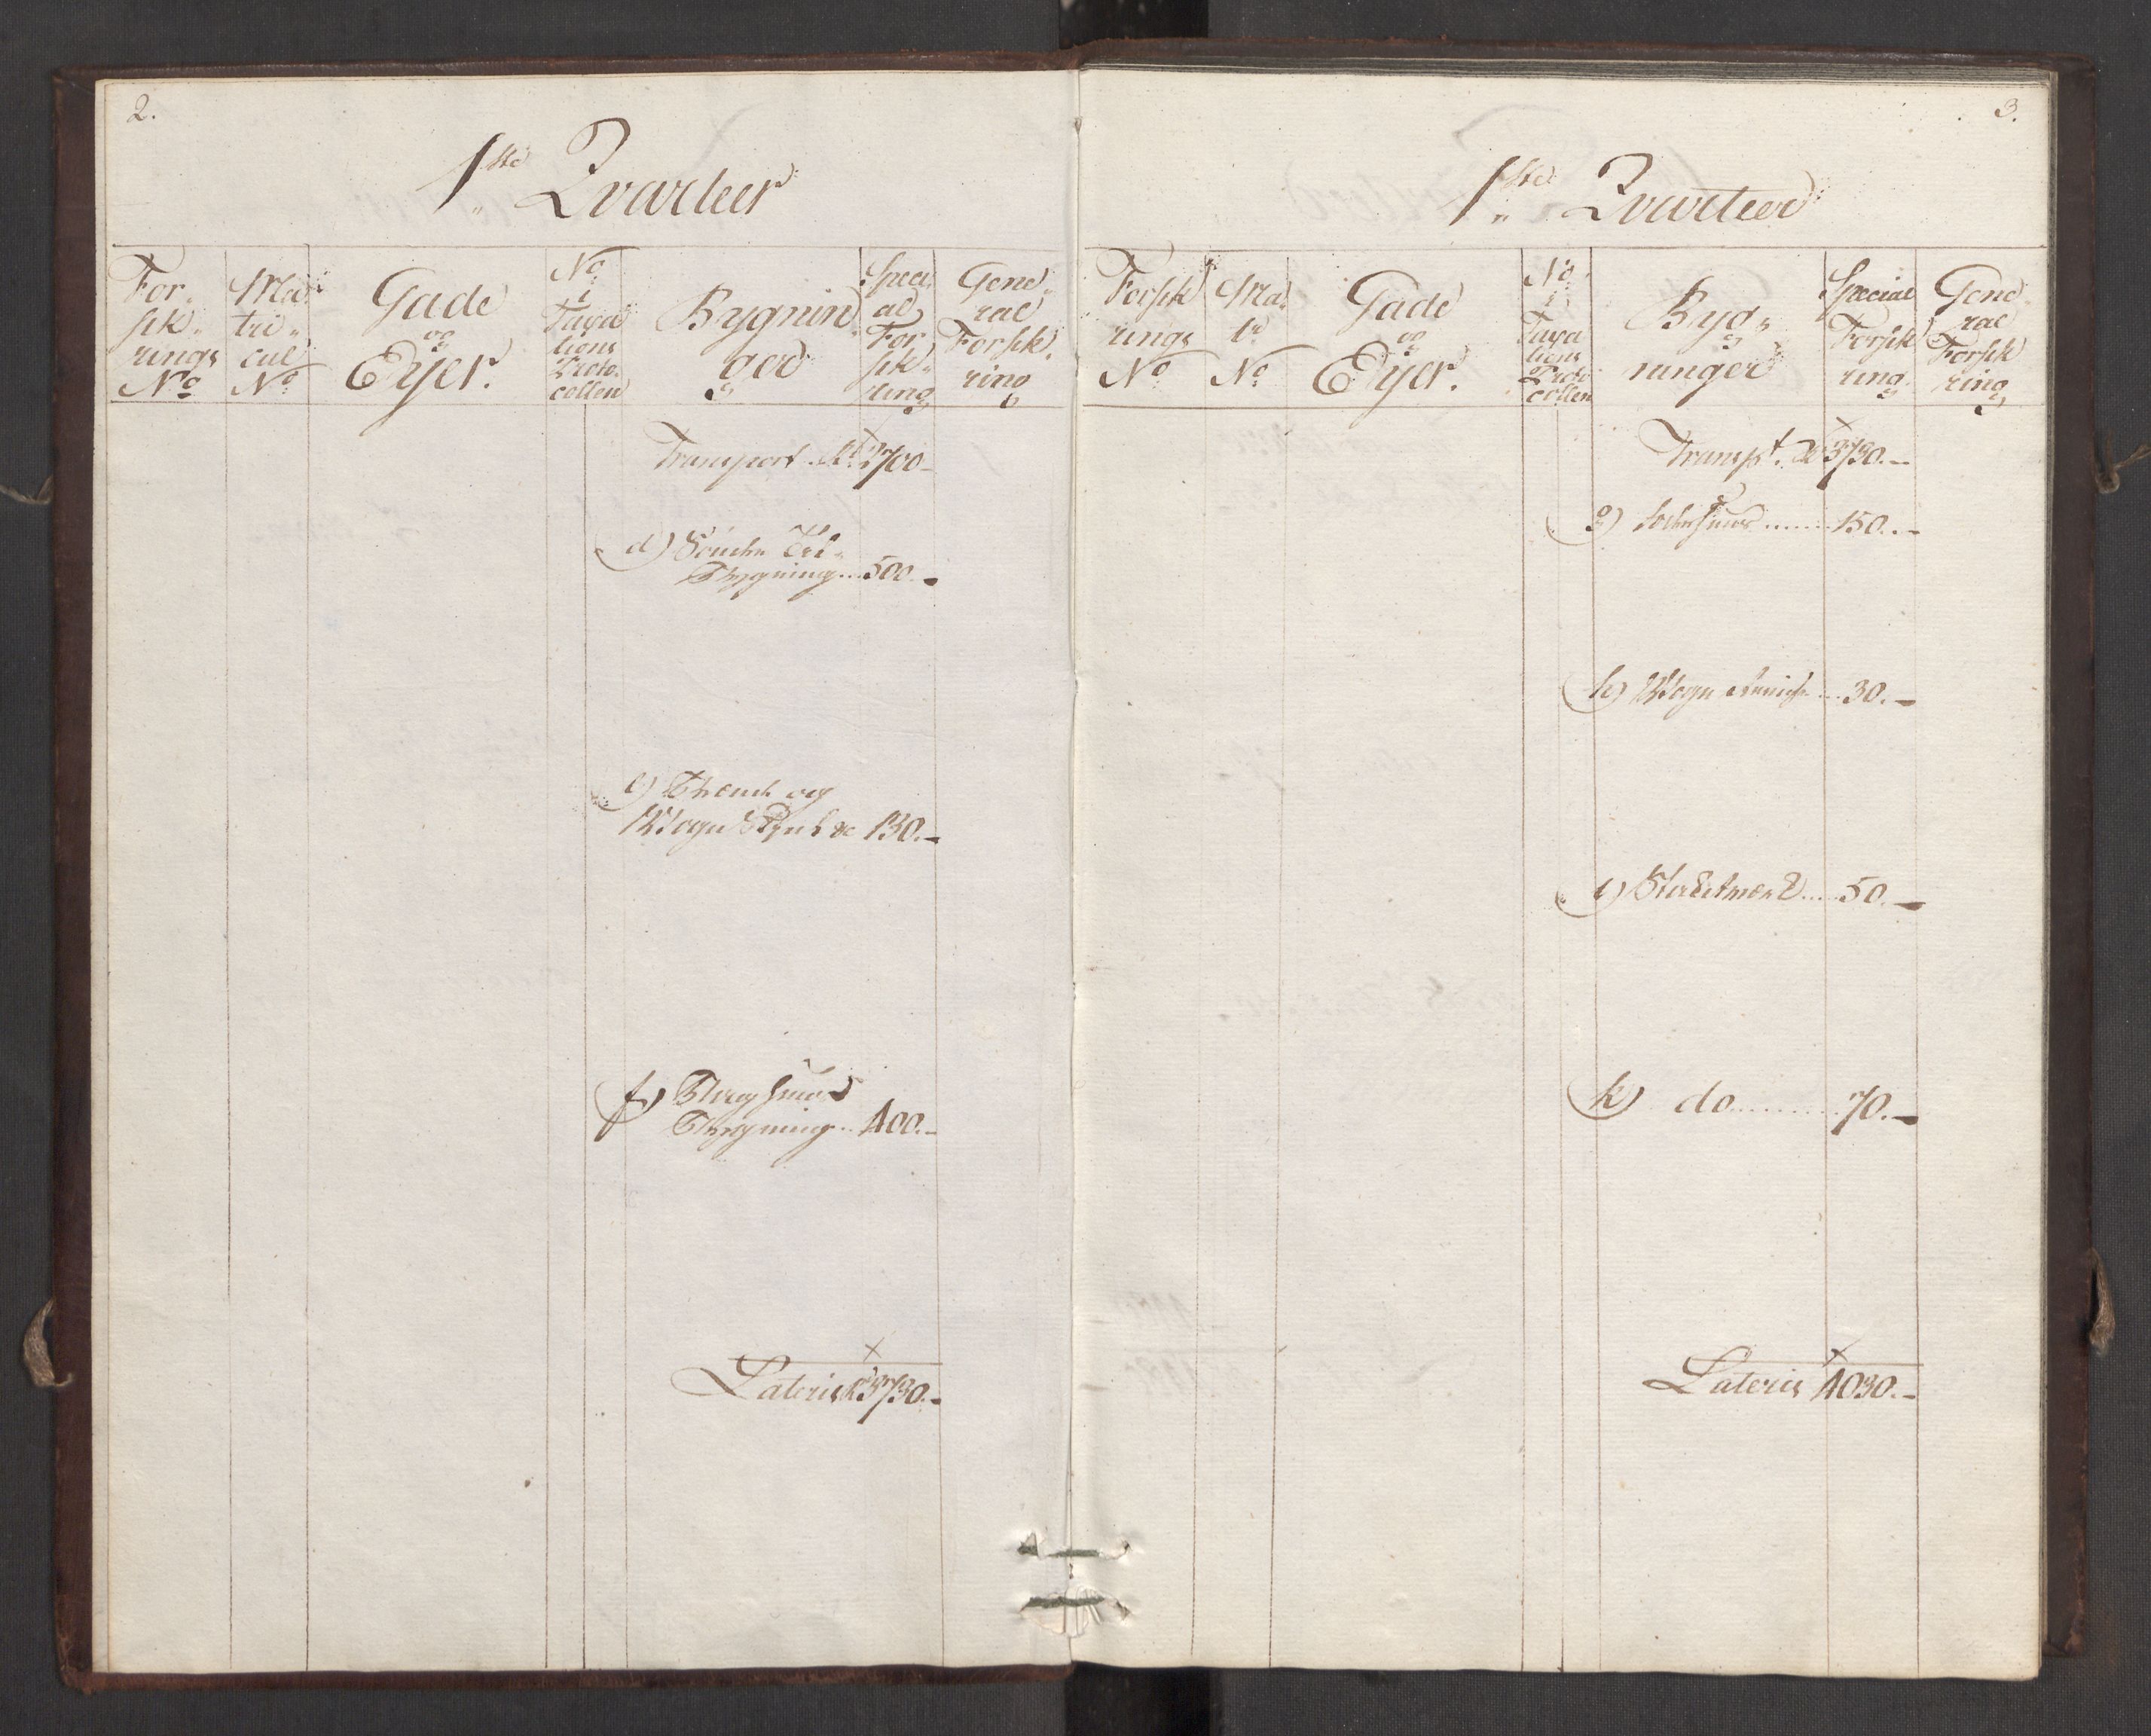 2.
1ste Qvarteer
For-
sik-
rings
No
Ma-
tri-
cul
No
Gade
og
Eyer.
No
i
Taxa
tions
Proto-
collen
Bygnin
ger
Speci
al
For
sik-
ring
Gene-
ral
Forsik-
ring
Transport Rd 2700-
d) Søndre
Bygning... 500.-
e) Brænde og
Wogn Skuur 130.-
f) Bryghuus
Bygning.. 400.-
Lateris Rd 3730.-
3.
1ste Qvarteer
Forsik
rings
No
Ma-
tr
No
Gade
og
Eyer.
No
i
Taxa
tions
Proto
collen
Byg-
ninger
Special
Forsik
ring
Gene
ral
Forsik
ring
Transpt. Rd 3730.-
g) ....... 150.-
h) Wogn .... 30.-
i) Stakitværk..... 50.-
k) do......... 70.-
Lateris 4030.-